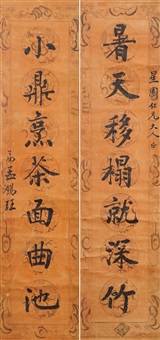 暑天移榻就深竹
小鼎烹茶面曲池
仁兄大人
孟錫珏